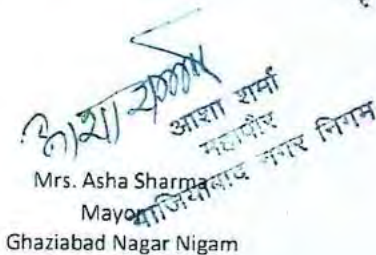 आशा शर्मा
आशा शर्मा
महापौर
गाजियाबाद नगर निगम
Mrs. Asha Sharma
Mayor
Ghaziabad Nagar Nigam